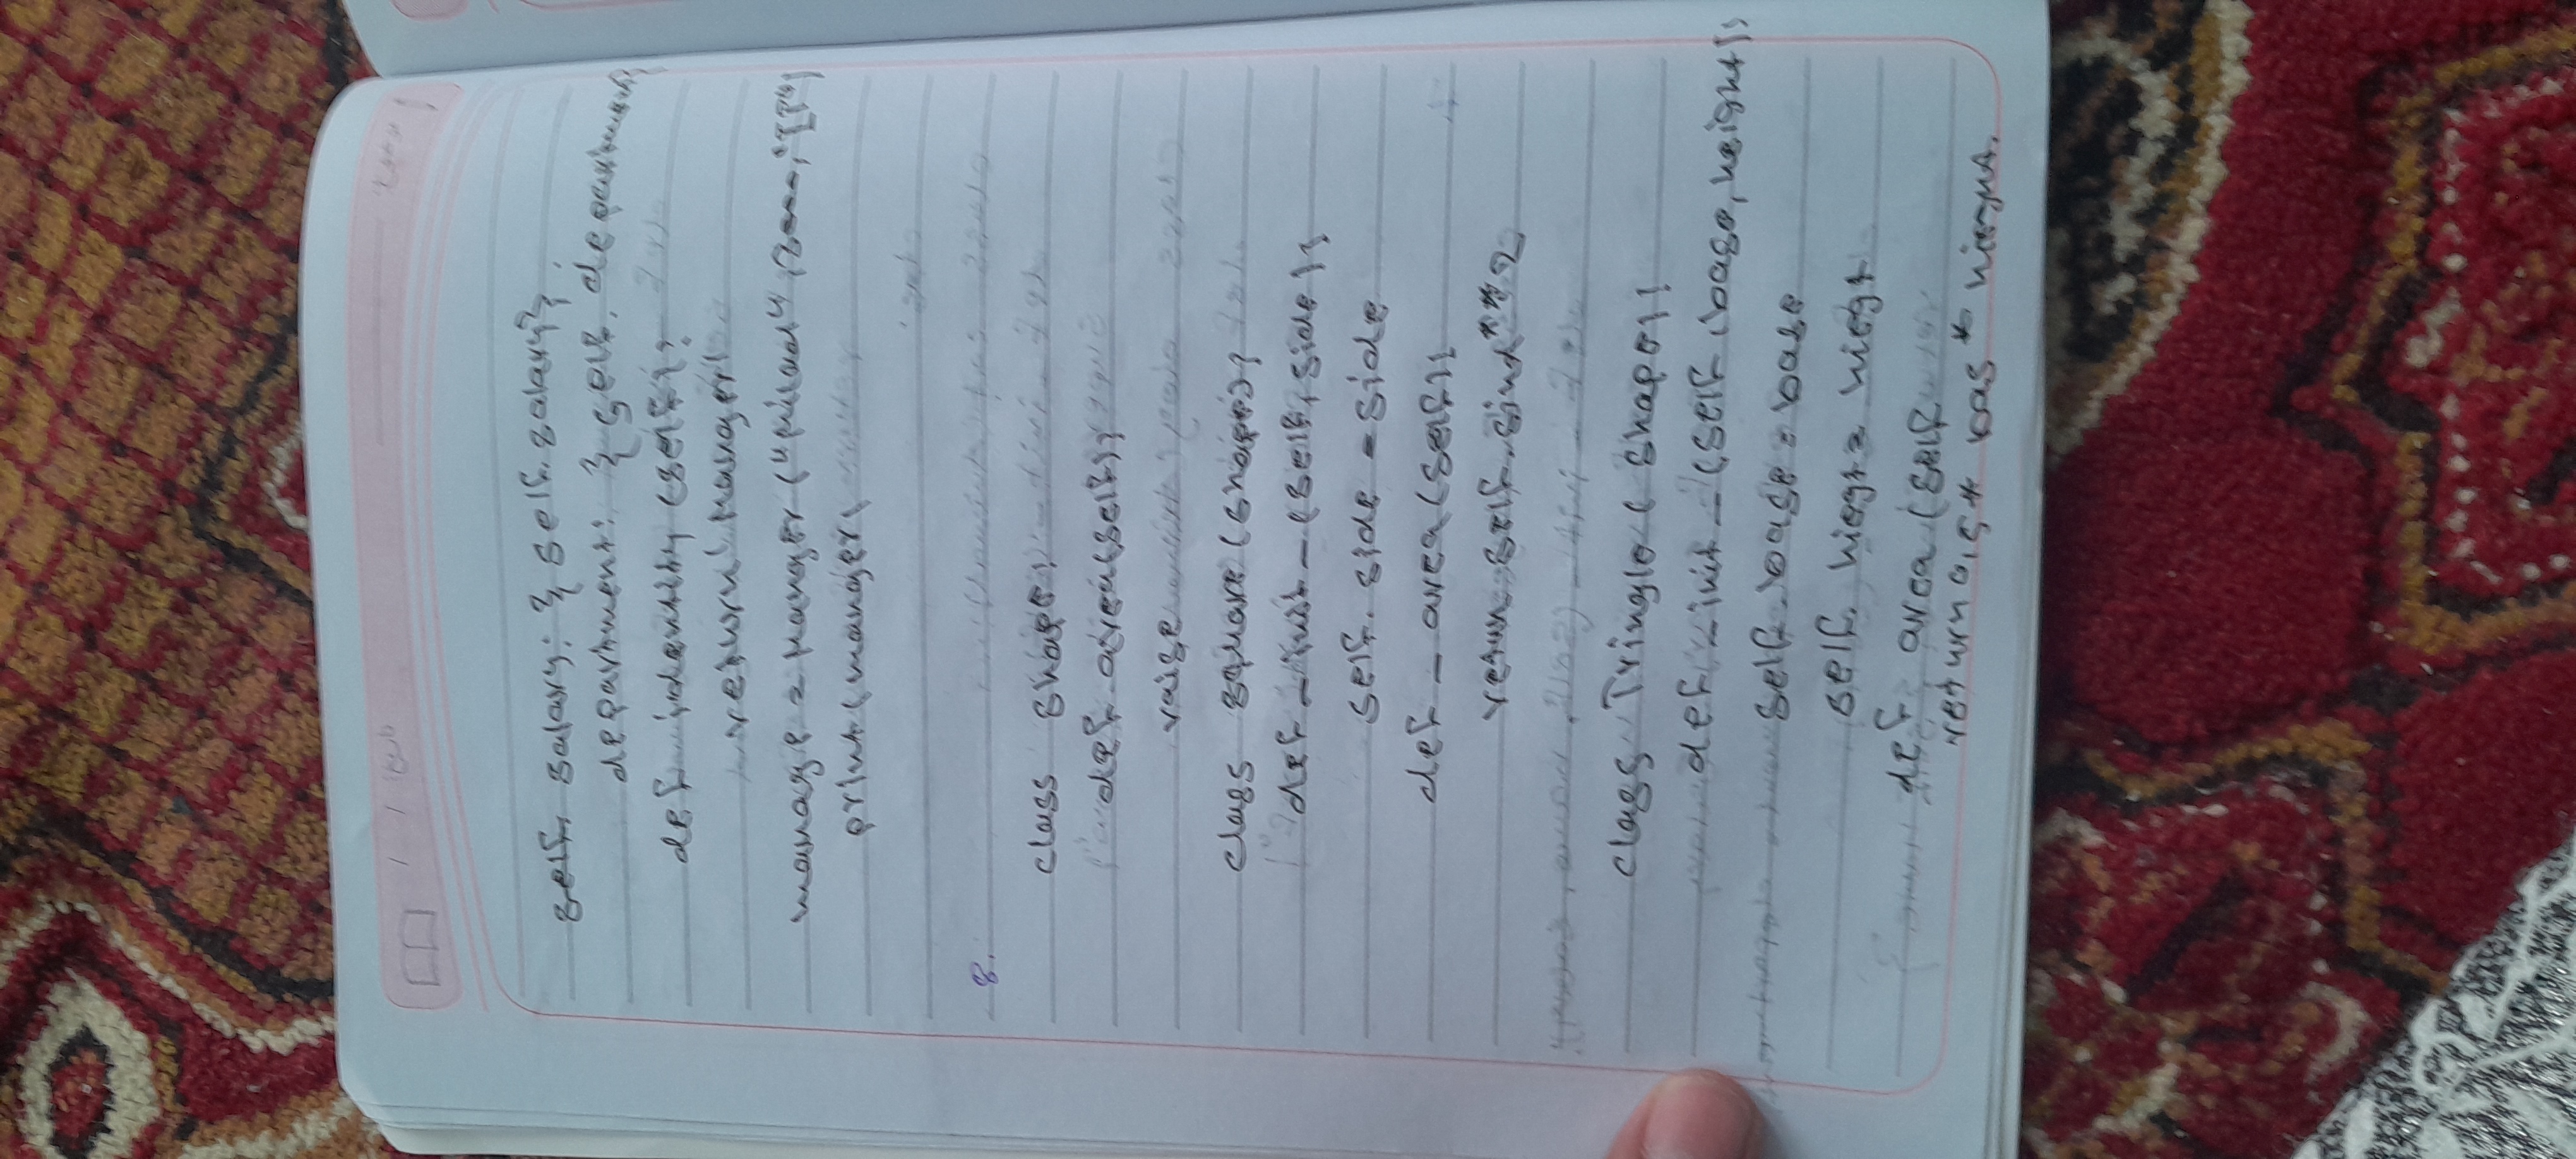 self. salary: { self. salary}
department: { self. department}
def identity (self):
return 'Manger'
manage = Manger ("Milad", 3000, "IT")
print (manger)
8.
class shape:
def area(self):
raise
class square (shape):
def _init_ (self, side):
self. side = side
def _ area (self):
retun self. sind**2
class Tringle ( shape):
def _init_ (self, base, height):
self. base = base
self. hiegt = hiegt
def area (self
return 0,5 * bas *